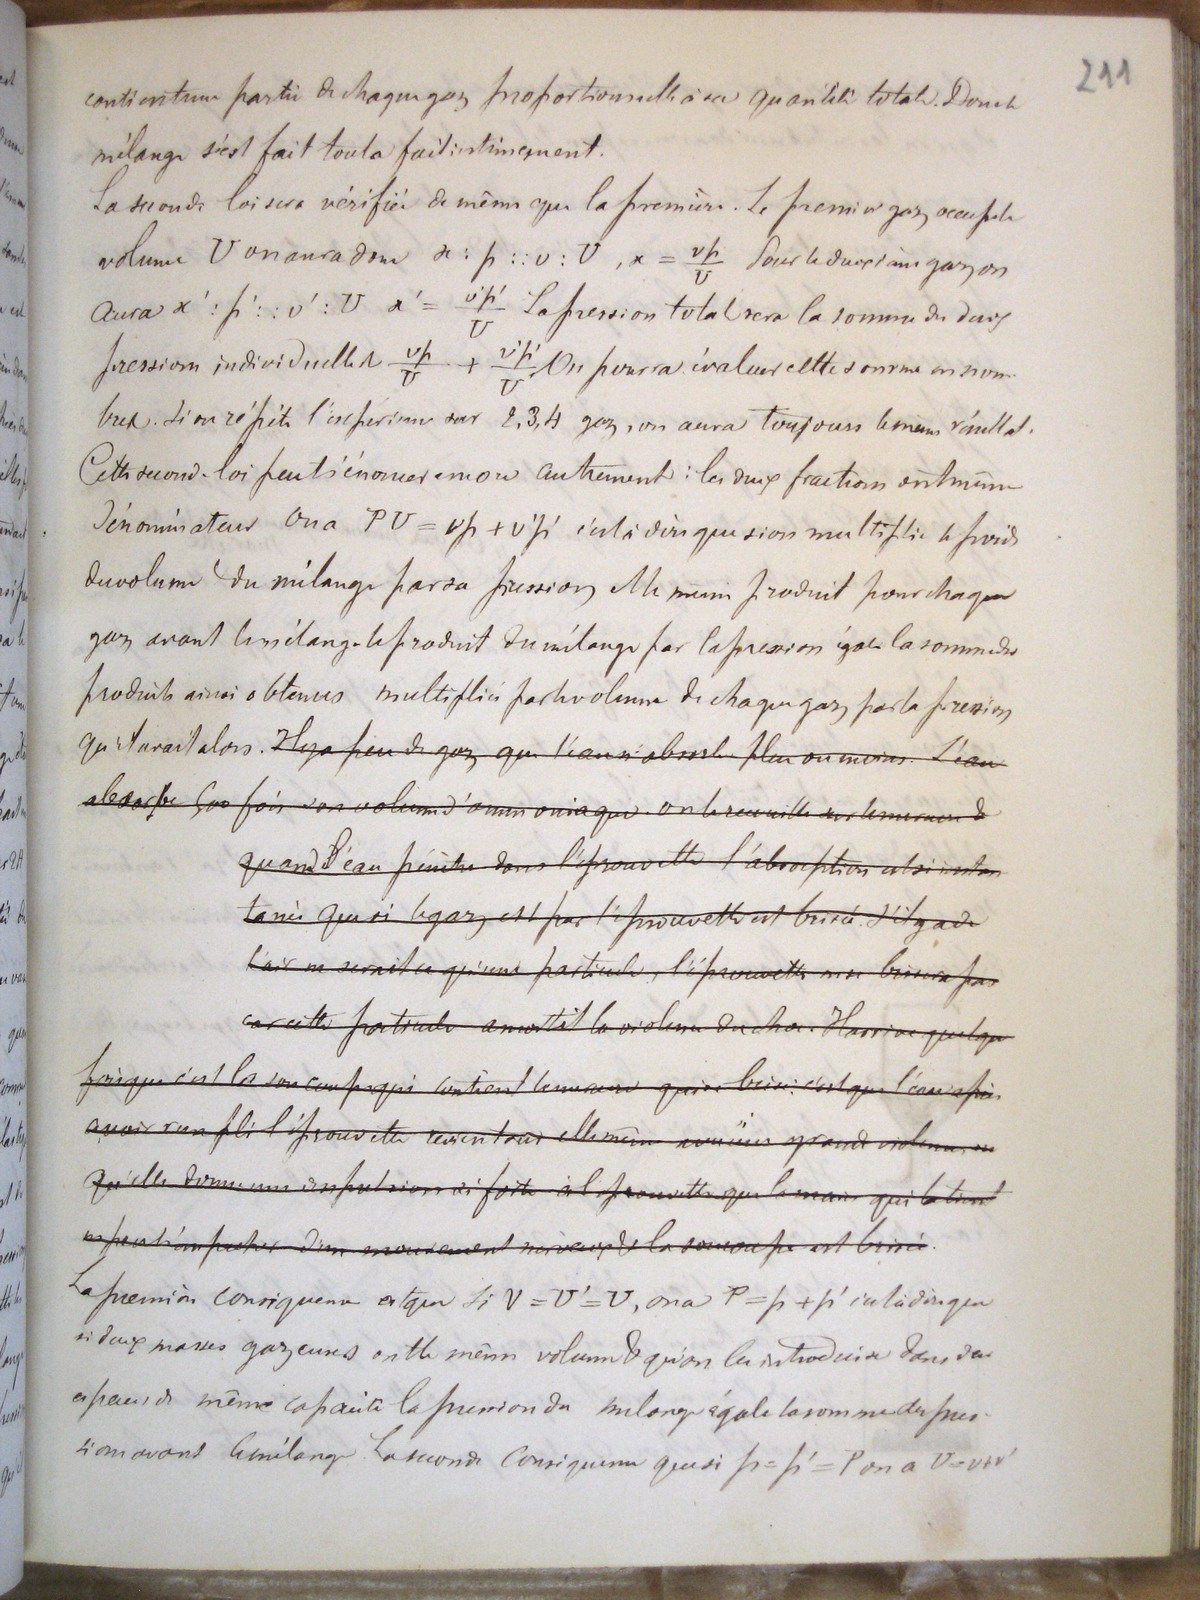 211
contient une partie de chaque gaz proportionnelle à sa quantité totale. Donc le
mélange s'est fait tout à fait intimement.
La seconde loi sera vérifiée de même que la première. Le premier gaz occupe le
volume U on aura donc x : p :: v : U , x = vp/U Pour le deuxième gaz on
aura x' : p' :: v' : U x' = v'p'/U La pression total sera la somme des deux
pressions individuelles vp/U + v'p'/U. On pourra évaluer cette somme en nom-
bres. Si on répète l'expérience sur 2,3,4 gaz, on aura toujours le même résultat.
Cette seconde loi peut s'énoncer encore autrement : les deux fractions ont même
dénominateur On a PU = vp + v'p' c'est à dire que si on multiplie le poids
du volume du mélange par sa pression et le même produit pour chaque
gaz avant le mélange le produit du mélange par la pression égale la somme des
produits ainsi obtenus multiplié par le volume de chaque gaz par la pression
qu'il avait alors. Il y a peu de gaz que l'eau n'absorbe plus ou moins. L'eau
absorbe 500 fois son volume d'ammoniaque. on le recueille sur le mercure &
quand l'eau pénètre dans l'éprouvette l'absorption est si instan
tanée que si le gaz est pur l'éprouvette est brisée. S'il y a de
l'air ne serait ce qu'une particule, l'éprouvette ne se brisera pas
car cette particule amortit la violence du choc. Il arrive quelque
fois que c'est la soucoupe qui contient le mercure qui se brise : c'est que l'eau après
avoir rempli l'éprouvette revient sur elle même avec une grande violence
qu'elle donne une impulsion si forte à l'éprouvette que la main qui la tient
ne peut s'empêcher d'un mouvement nerveux & la soucoupe est brisée.
La première conséquence est que si V = U' = U, on a P = p + p' c'est à dire que
si deux masses gazeuses ont le même volume & qu'on les introduise dans des
espaces de même capacité la pression du mélange égale la somme des pres-
sions avant le mélange La seconde conséquence que si p = p' = P on a U = v+v'